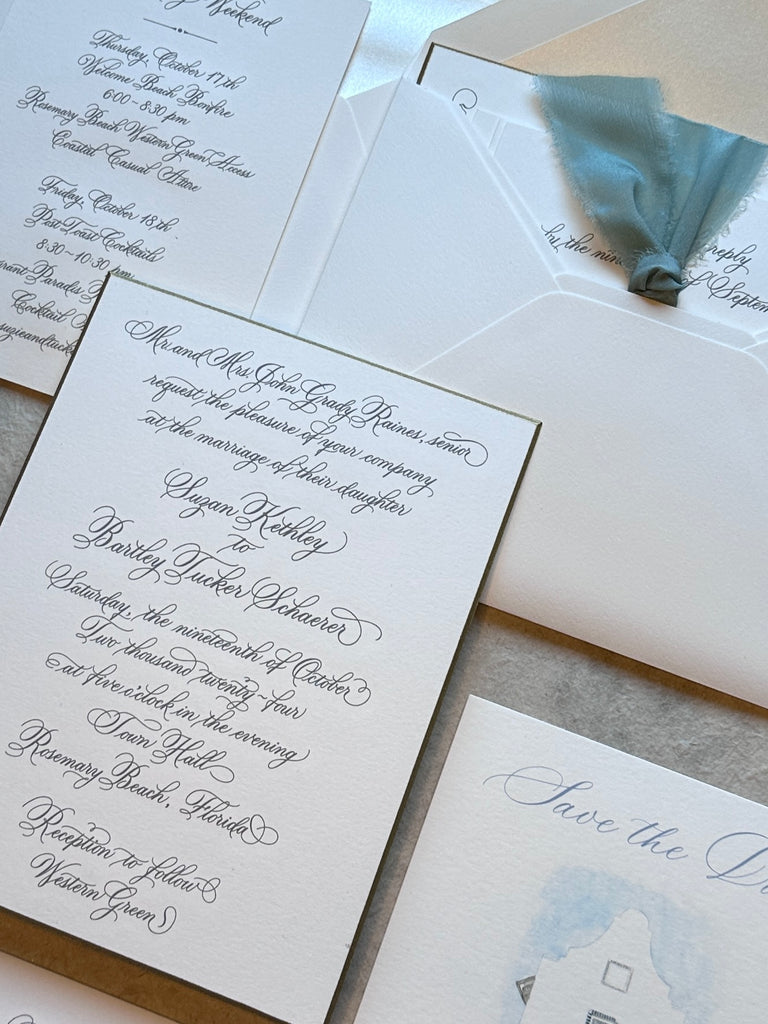 Weekend
Thursday, October 17th
Welcome Beach Bonfire
6:00 - 8:30 pm
Rosemary Beach Western Green Access
Coastal Casual Attire
Friday, October 18th
Post Toast Cocktails
8:30 - 10:30 pm
Paradis
Cocktail
reply
by the nine of Septem
Mr. and Mrs. John Grady Raines, senior
request the pleasure of your company
at the marriage of their daughter
Suzan Kethley
to
Bartley Tucker Schaerer
Saturday, the nineteenth of October
Two thousand twenty-four
at five o'clock in the evening
Town Hall
Rosemary Beach, Florida
Reception to follow
Western Green
Save the D